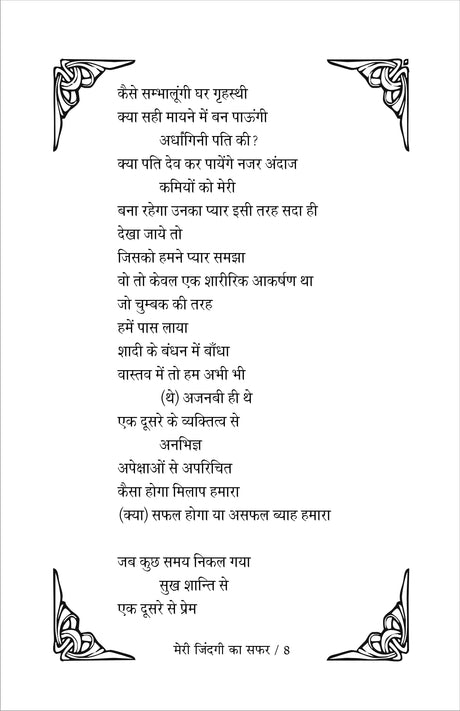 कैसे सम्भालूंगी घर गृहस्थी
क्या सही मायने में बन पाऊंगी
अर्धांगिनी पति की?
क्या पति देव कर पायेंगे नजर अंदाज
कमियों को मेरी
बना रहेगा उनका प्यार इसी तरह सदा ही
देखा जाये तो
जिसको हमने प्यार समझा
वो तो केवल एक शारीरिक आकर्षण था
जो चुम्बक की तरह
हमें पास लाया
शादी के बंधन में बाँधा
वास्तव में तो हम अभी भी
(थे) अजनबी ही थे
एक दूसरे के व्यक्तित्व से
अनभिज्ञ
अपेक्षाओं से अपरिचित
कैसा होगा मिलाप हमारा
(क्या) सफल होगा या असफल ब्याह हमारा
जब कुछ समय निकल गया
सुख शान्ति से
एक दूसरे से प्रेम
मेरी जिंदगी का सफर / 8